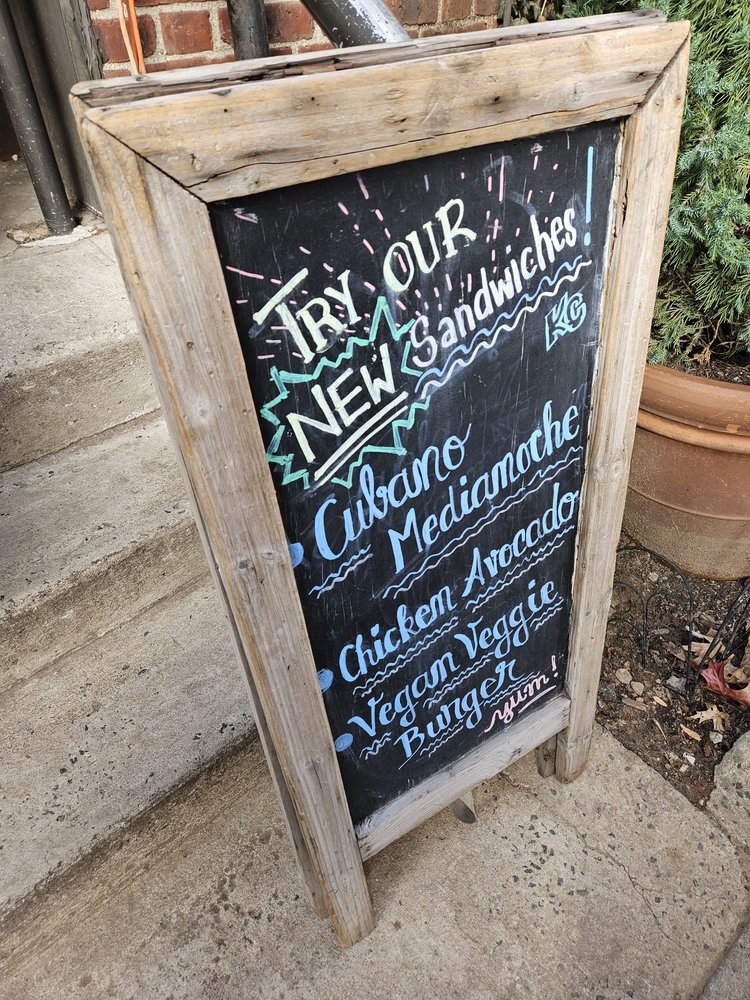 TRY OUR
NEW Sandwiches!
• Cubano
Mediamoche
• Chicken Avocado
• Vegan Veggie
Burger yum!